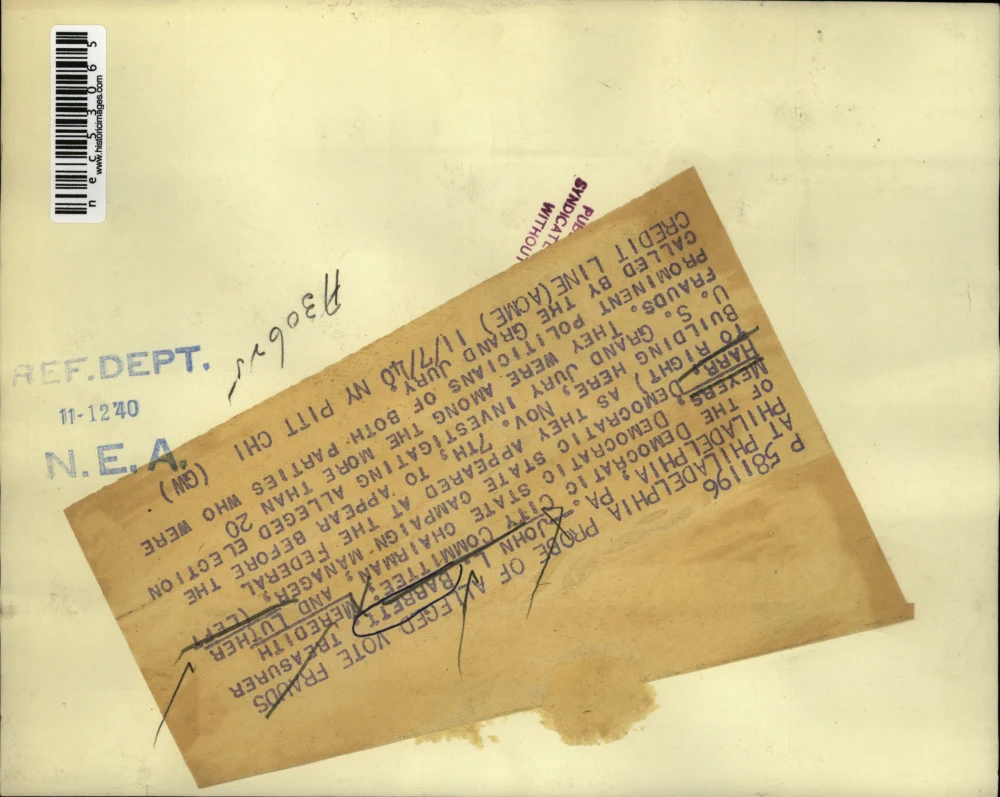 n e c 5 3 0 6 5
www.historicimages.com
SYNDICAT
WITHOU
A306rs
REF.DEPT.
11-12'40
N.E.A.
P 581196
AT PHILADELPHIA PROBE OF ALLEGED VOTE FRAUDS
PHILADELPHIA, PA. JOHN L. BARRETT, TREASURER
OF THE DEMOCRATIC CITY COMMITTEE; MEREDITH
MEYERS DEMOCRATIC STATE CHAIRMAN, AND LUTHER
HARR, DEMOCRATIC STATE CAMPAIGN MANAGER, (LEFT
TO RIGHT) AS THEY APPEARED AT THE FEDERAL
BUILDING HERE, NOV. 7TH, TO APPEAR BEFORE THE
U. S. GRAND JURY INVESTIGATING ALLEGED ELECTION
FRAUDS. THEY WERE AMONG THE MORE THAN 20
PROMINENT POLITICIANS OF BOTH PARTIES WHO WERE
CALLED BY THE GRAND JURY.
CREDIT LINE (ACME) 11/7/40 NY PITT CHI (GW)